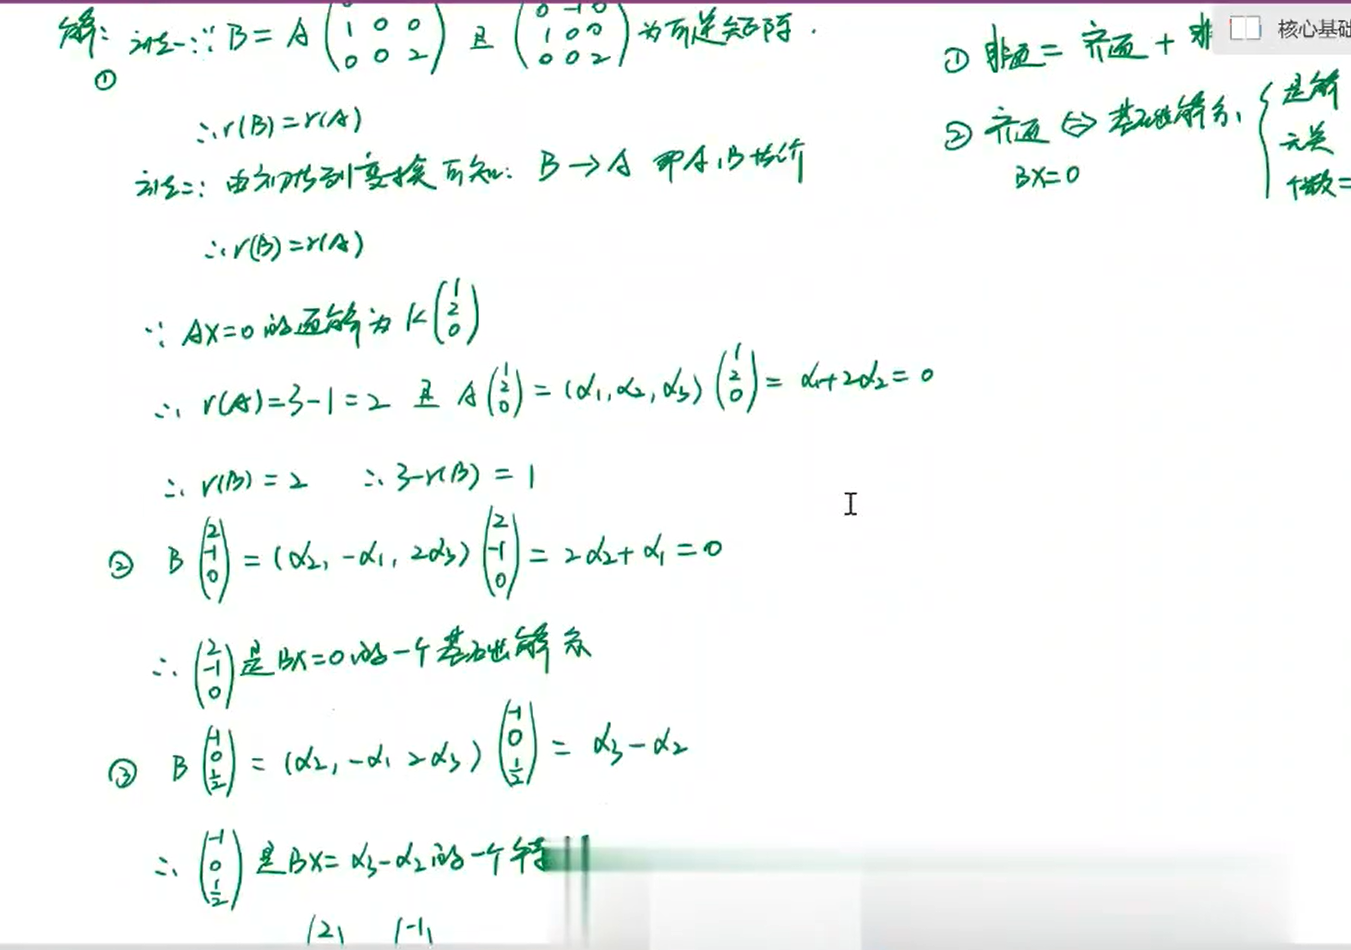 解: 法一: ∵ B = A ( 0 -1 0 ; 1 0 0 ; 0 0 2 ) 且 ( 0 -1 0 ; 1 0 0 ; 0 0 2 ) 为可逆矩阵.
①
∴ r(B) = r(A)
法二: 由初等列变换可知: B → A 即A,B等价
∴ r(B) = r(A)
∵ AX=0的通解为 k ( 1 2 0 )
∴ r(A)=3-1=2 且 A ( 1 2 0 ) = (α1, α2, α3) ( 1 2 0 ) = α1+2α2 = 0
∴ r(B) = 2 ∴ 3-r(B) = 1
② B ( 2 -1 0 ) = (α2, -α1, 2α3) ( 2 -1 0 ) = 2α2+α1 = 0
∴ ( 2 -1 0 ) 是BX=0的一个基础解系
③ B ( -1 0 1/2 ) = (α2, -α1 2α3) ( -1 0 1/2 ) = α3-α2
∴ ( -1 0 1/2 ) 是BX= α3-α2的一个特
2 -1
核心基础
① 非通 = 齐通 + 非
② 齐通 ⇔ 基础解系
BX=0
是解
无关
个数=